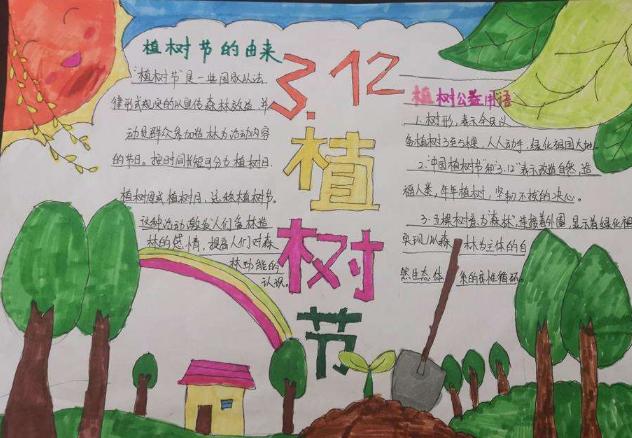 植树节的由来
"植树节"是一些国家以法
律形式规定的以宣传森林效益,并
动员群众参加造林为活动内容
的节日。按时间长短可分为植树日、
植树周或植树月,总称植树节。
这种活动,激发人们爱林造
林的感情,提高人们对森
林功能的
认识。
3.12
植
树
节
植树公益用语
1.树形,表示全民义
务植树3至5棵,人人动手,绿化祖国大地。
2."中国植树节"和"3.12"表示改造自然,造
福人类,年年植树,坚韧不拔的决心。
3.五棵树会为"森林",连接着外圈,显示着绿化祖
实现以森 林为主体的自
然生态体 系的良性循环。